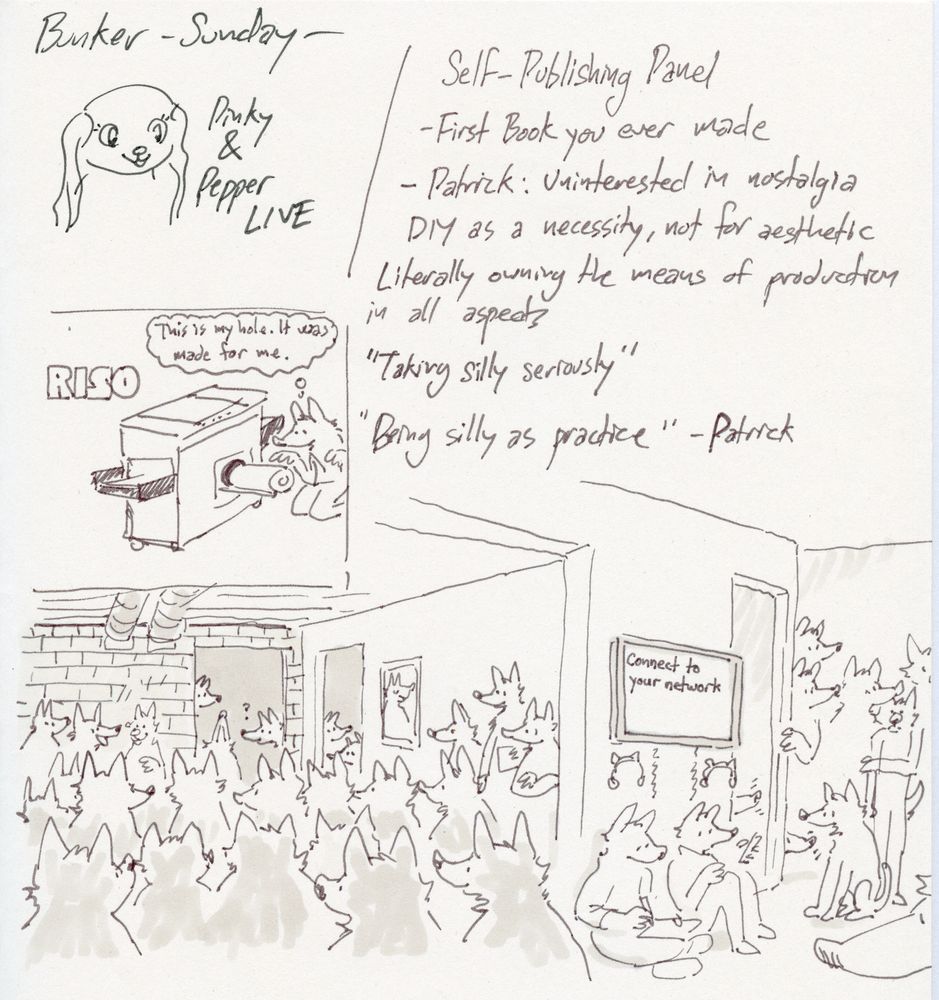 Bunker - Sunday -
Pinky
&
Pepper
LIVE
Self-Publishing Panel
- First Book you ever made
- Patrick: Uninterested in nostalgia
DIY as a necessity, not for aesthetic
Literally owning the means of production
in all aspects
"Taking silly seriously"
"Being silly as practice" - Patrick
This is my hole. It was
made for me.
RISO
?
Connect to
your network